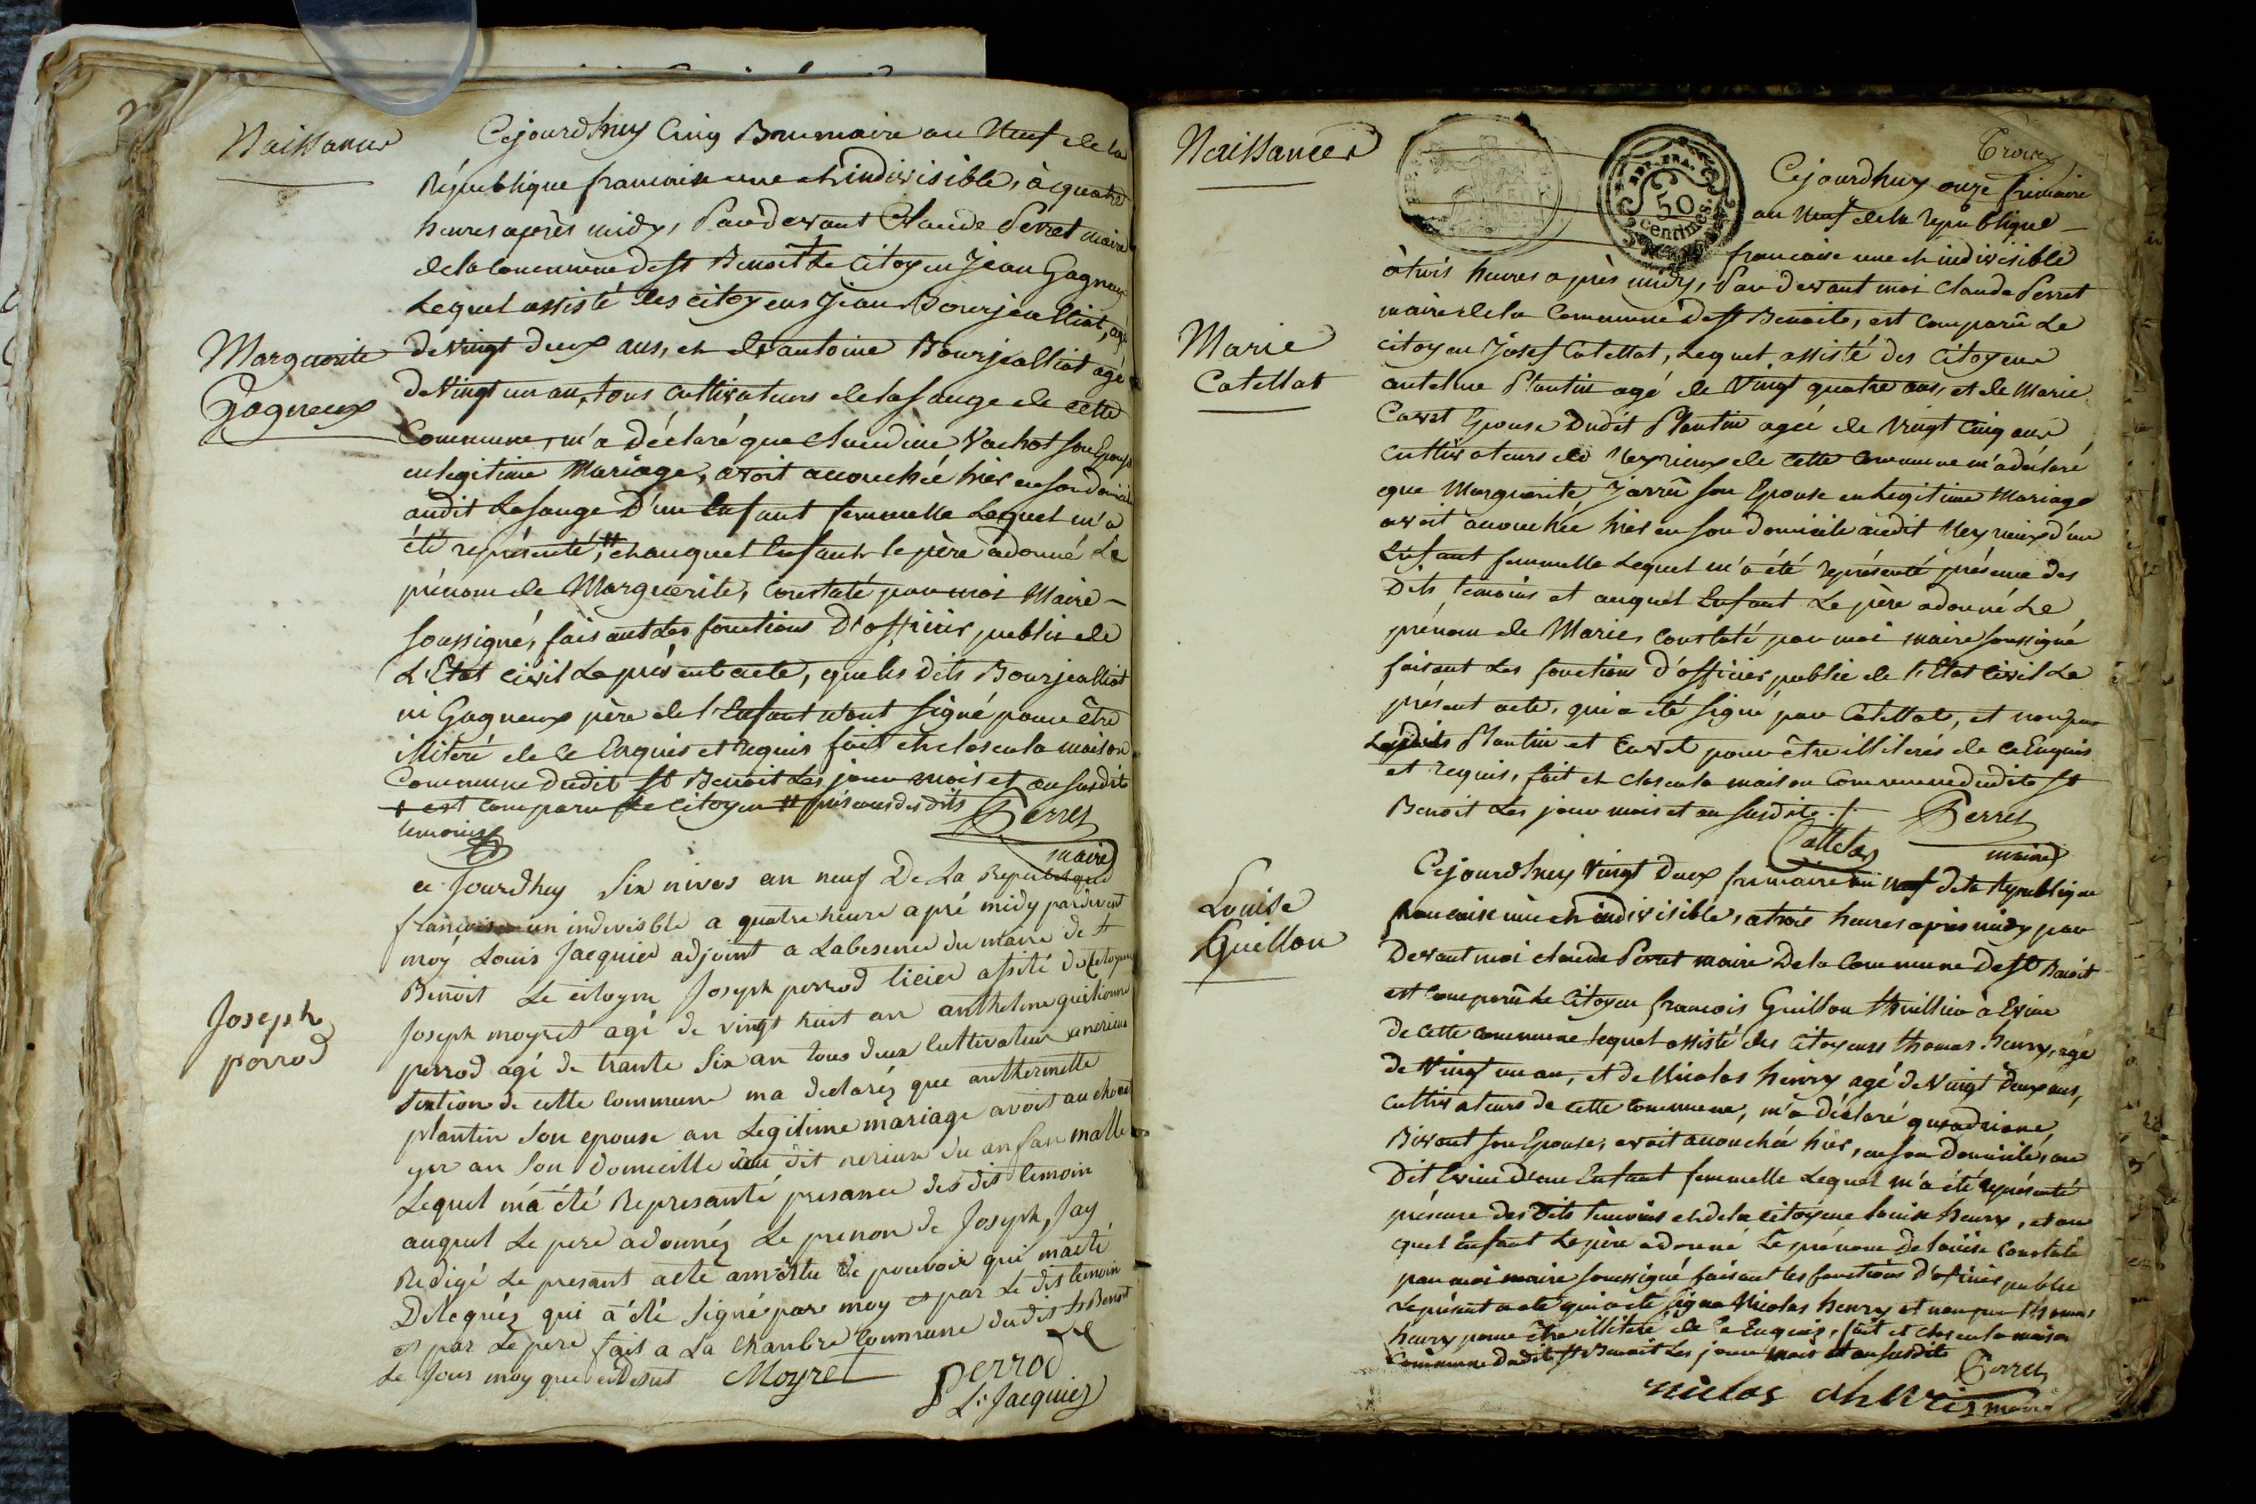 Naissances
Cejourdhuy Cinq Brumaire an Neuf de la
République francaise une et indivisible, à quatre
heures après midy, Pardevant Claude Perret maire
de la Commune de st Benoit le Citoyen Jean Gagneux
Lequel assisté des citoyens Jean Bourjealliat, agé
Marguerite
Gagneux
de vingt deux ans, et de antoine Bourjealliat agé
de Vingt un an, tous cultivateurs de la sauge de cette
Commune, m'a Déclaré que Vachot son Epouse
en legitime Mariage, avoit accouchée hier en son domicile
audit Lasauge D'un Enfant femmelle Lequel m'a
été représenté, # et auquel Enfant le père a donné Le
prénom de Marguerite, Constaté par moi Maire
soussigné, faisant Les fonctions D'officier public de
L'Etat civil Le présent acte, que les dits Bourjealliat
ni Gagneux père de l'Enfant n'ont signé pour être
illiteré de ce Enquis et requis fait et clos en la maison
Commune dudit st Benoit Les jour mois et an susdits
+ est comparu le citoyen # présence des dits
temoins
Perret
maire
Joseph
perrod
ce jourdhuy six nivos an neuf De La Republique
françoise un indivisble a quatre heure apré midy pardevant
moy Louis Jacquier adjoint a Labesence du maire de st
Benoit Le citoyen Joseph perrod assité de Citoyens
Joseph moyret agé de vingt huit an anthelme
perrod agé de trante six an tous deux Cultivateur
section de cette commune ma declaréz que anthermette
plantin son epouse an Legitime mariage avoit auchoué
yer an son domicille au dit nerieux du anfan malle
Lequel m'a été Represanté presance des dit temoin
auquel Le pere a donnéz Le prenon de Joseph, Jay
Redigé Le presant acte amvertu de pouvoir qui m'a eté
Deleguéz qui a été signé par moy et par Le dit temoin
et par Le pere fait a La chambre Commune dudit st Benoit
Le Jour moy que cidesut Moyret Perrod
L. Jacquier
Naissances
Trois
REP. FRA.
50
centimes.
Cejourdhuy onze frimaire
an Neuf de la république
francaise une et indivisible
à trois heures après midy, Pardevant moi Claude Perret
maire de la Commune de st Benoit, est comparû Le
Marie
Catellat
citoyen Josef Catellat, Lequel assisté des Citoyens
antelme Plantin agé de Vingt quatre ans, et de Marie
Cavet Epouse Dudit Plantin agée de Vingt Cinq ans
Cultivateurs de de cette Commune m'a déclaré
que Marguerite Jarru son Epouse en Legitime Mariage
avoit accouchée hier en son domicile audit d'un
Enfant femmelle Lequel m'a été représenté présence des
Dits temoins et auquel Enfant Le père a donné Le
prénom de Marie, constaté par moi maire soussigné
faisant Les fonctions d'officier public de l'Etat civil Le
présent acte, qui a été signé par Catellat, et non par
Lesdits Plantin et Cavet pour être illiterés de ce Enquis
et requis, fait et clos en la maison Commune dudit st
Benoit Les jour mois et an susdits
Perret
maire
Louise
Guillon
Cejourdhuy Vingt Deux frimaire an neuf de la République
francaise une et indivisible, a trois heures après midy par
Devant moi claude Perret maire De la Commune De st Benoit
est Comparû Le Citoyen francois Guillon à Evieu
de cette commune Lequel assisté des Citoyens thomas henry, agé
de Vingt un an, et de Nicolas henry agé de Vingt deux ans,
Cultivateurs de cette Commune, m'a déclaré qu'adrienne
Bivant son Epouse, avoit accouchée hier, en son Domicile, au
Dit Evieu D'une Enfant femmelle Lequel m'a été représenté
présence des Dits temoins et de la citoyene Louise henry, et au
quel Enfant Le père a donné Le prénom De Louise Constaté
par moi maire soussigné faisant les fonctions D'officier public
Le présent acte qui a été signé Nicolas henry et non par thomas
henry pour être illiteré de ce Enquis, fait et clos en la maison
Commune Dudit st Benoit Les jour mois et an susdits
Perret
maire